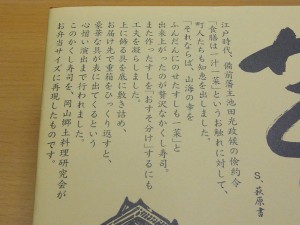 江戸時代、備前藩主池田光政候の倹約令
「食膳は一汁一菜」というお触れに対して、
町人たちも知恵を出しました。
「それならば、山海の幸を
ふんだんにのせたすしも一菜」と
出来上がったのが贅沢なかくし寿司。
また作ったすしを、おすそ分け」するにも
工夫を凝らしました。
上に飾る具を底に敷き詰め、
お届け先で重箱をひっくり返すと、
豪華な具が表に出てくるという
心憎い演出まで行われました。
このかくし寿司を、岡山郷土料理研究会が
お弁当サイズに再現したものです。
S．萩原書